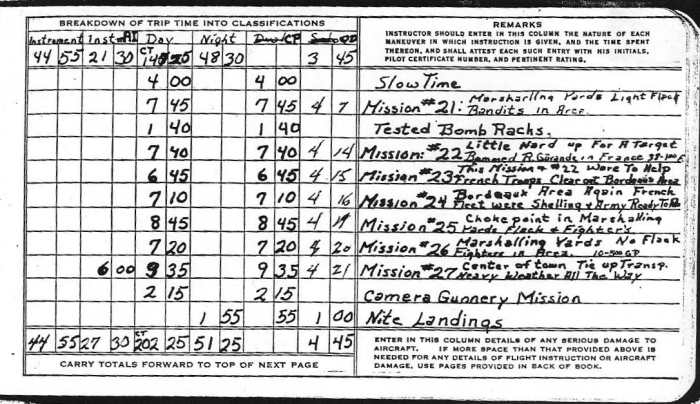 BREAKDOWN OF TRIP TIME INTO CLASSIFICATIONS
REMARKS
INSTRUCTOR SHOULD ENTER IN THIS COLUMN THE NATURE OF EACH
MANEUVER IN WHICH INSTRUCTION IS GIVEN, AND THE TIME SPENT
THEREON, AND SHALL ATTEST EACH SUCH ENTRY WITH HIS INITIALS,
PILOT CERTIFICATE NUMBER, AND PERTINENT RATING.
Instrument Inst Day Night CP
44 55 21 30 CT 25 48 30 3 45
4 00 4 00 Slow Time
7 45 7 45 4 7 Mission #21: Marshalling Yards Light Flack
Bandits in Area.
1 40 1 40 Tested Bomb Racks.
7 40 7 40 4 14 Mission: #22 Little Hard up For A Target
Bommed R. in France
6 45 6 45 4 15 Mission #23 This Mission & #22 Were To Help
French Troops Clear out Bordeaux Area
7 10 7 10 4 16 Mission #24 Bordeaux Area Again French
Fleet were Shelling & Army Ready To
8 45 8 45 4 Mission #25 Choke point in Marshalling
Yards Flack & Fighter's
7 20 7 20 4 20 Mission #26 Marshalling Yards No Flack
Fighters in Area.
6 00 9 35 9 35 4 21 Mission #27 Center of town Tie up Transp.
Heavy Weather All The Way
2 15 2 15 Camera Gunnery Mission
1 55 55 1 00 Nite Landings
44 55 27 30 CT 202 25 51 25 4 45
CARRY TOTALS FORWARD TO TOP OF NEXT PAGE
ENTER IN THIS COLUMN DETAILS OF ANY SERIOUS DAMAGE TO
AIRCRAFT. IF MORE SPACE THAN THAT PROVIDED ABOVE IS
NEEDED FOR ANY DETAILS OF FLIGHT INSTRUCTION OR AIRCRAFT
DAMAGE, USE PAGES PROVIDED IN BACK OF BOOK.